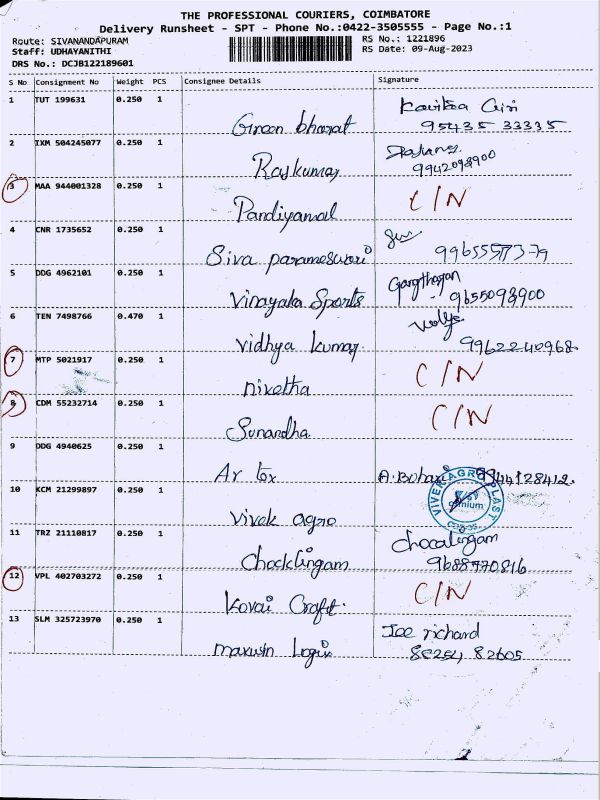 THE PROFESSIONAL COURIERS, COIMBATORE
Delivery Runsheet - SPT - Phone No.:0422-3505555 - Page No.:1
Route: SIVANANDAPURAM RS No.: 1221896
Staff: UDHAYANITHI RS Date: 09-Aug-2023
DRS No.: DCJB122189601
S No Consignment No Weight PCS Consignee Details Signature
1 TUT 199631 0.250 1 Green bharat Kavitha Giri
95435 33335
2 IXM 504245077 0.250 1 Rajkumar
9942098900
3 MAA 944001328 0.250 1 Pandiyamal C/N
4 CNR 1735652 0.250 1 Siva parameswari
5 DDG 4962101 0.250 1 Vinayaka Sports
9655098900
6 TEN 7498766 0.470 1 Vidhya kumar
9962240968
7 MTP 5021917 0.250 1 niketha C/N
8 CDM 55232714 0.250 1 Sunandha C/N
9 DDG 4940625 0.250 1 Ar tex 9944128412
10 KCM 21299897 0.250 1 Vivek agro VIVEK AGRO PLAST
11 TRZ 21110817 0.250 1 Chocklingam Chocalingam
9688770816
12 VPL 402703272 0.250 1 Kovai Craft. C/N
13 SLM 325723970 0.250 1 Logix Joe richard
82254 82605